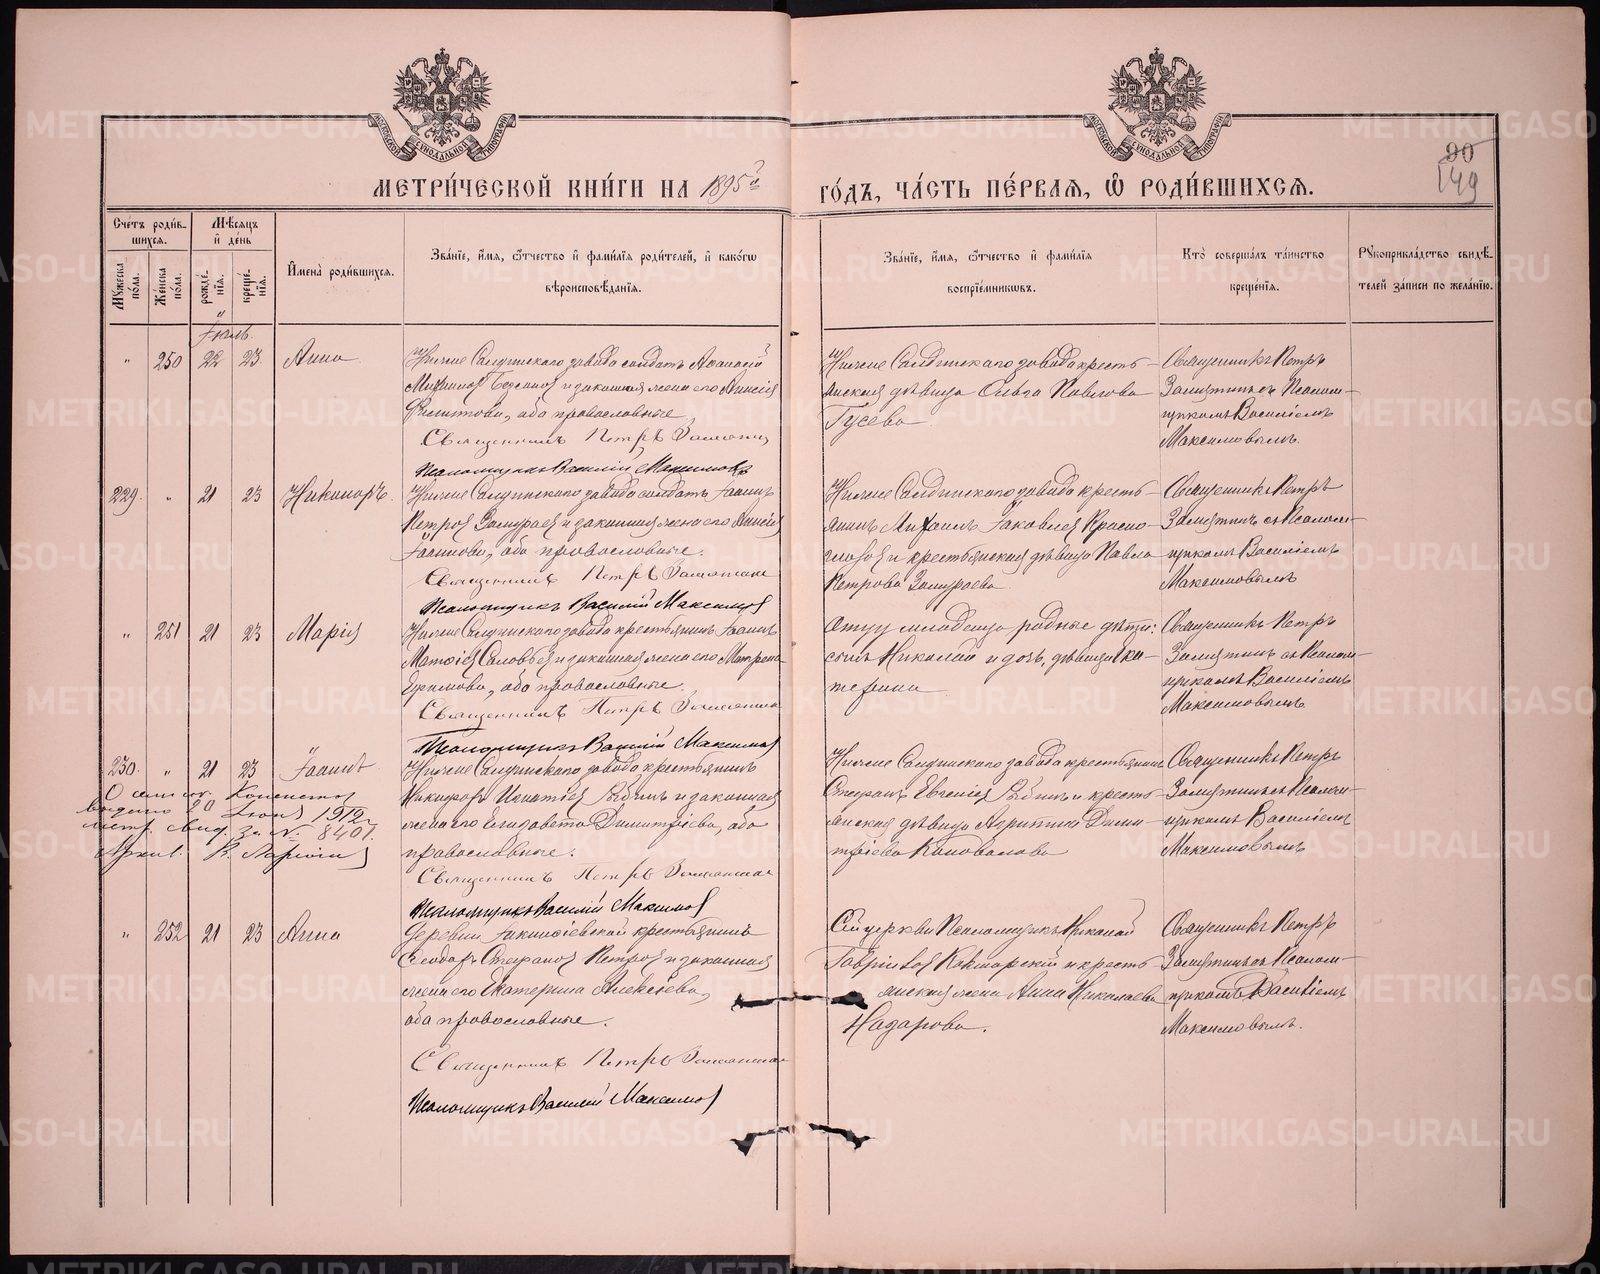 МЕТРИ́ЧЕСКОЙ КНИ́ГИ НА 1895й
ГО́ДЪ, ЧА́СТЬ ПЕ́РВАЯ, Ѽ РОДИ́ВШИХСЯ.
90
149
Сче́тъ роди́в-
шихся.
Мѣ́сяцъ
и҆ де́нь
Му́жеска
по́ла.
Же́нска
по́ла.
рожде́-
нїѧ.
креще́-
нїѧ.
И҆мена̀ роди́вшихся.
Зва́нїе, и҆́мя, ѻ҆́тчество и҆ фами́лїя роди́телей, и҆ како́гѡ
вѣроисповѣ́данїя.
Зва́нїе, и҆́мя, ѻ҆́тчество и҆ фами́лїя
воспрїе́мникѡвъ.
Кто̀ соверша́лъ та́инство
креще́нїя.
Рꙋкоприкла́дство свидѣ́-
телей за́писи по жела́нїю.
Іюль.
" 250 22 23 Анна
Нижне Салдинскаго завода солдатъ Аѳанасій
и законная жена его Анисія
Филиппова, оба православные.
Священникъ Петръ Замятинъ
Псаломщикъ Василій Максимовъ
Нижне Салдинскаго завода кресть-
янская дѣвица Ольга Павлова
Гусева
Священникъ Петръ
Замятинъ съ Псалом-
щикомъ Василіемъ
Максимовымъ.
229. " 21 23 Никаноръ.
Нижне Салдинскаго завода солдатъ Іоаннъ
Петровъ Замураевъ и законная жена его Анисія
Іоаннова, оба православные.
Священникъ Петръ Замятинъ
Псаломщикъ Василій Максимовъ
Нижне Салдинскаго завода кресть-
янинъ Михаилъ Іаковлевъ Красно-
глазовъ и крестьянская дѣвица Павла
Петрова Замураева
Священникъ Петръ
Замятинъ съ Псалом-
щикомъ Василіемъ
Максимовымъ
" 251 21 23 Марія
Нижне Салдинскаго завода крестьянинъ Іоаннъ
Матѳіевъ Соловьевъ и законная жена его Матрена
Ефимова, оба православные.
Священникъ Петръ Замятинъ
Псаломщикъ Василій Максимовъ
Отцу младенца родные дѣти:
сынъ Николай и дочь, дѣвица Ека-
терина
Священникъ Петръ
Замятинъ съ Псалом-
щикомъ Василіемъ
Максимовымъ.
230. " 21 23 Іоаннъ
О семъ
выдано 20 Іюня 1912 г.
метр. свид. за № 8401.
Нижне Салдинскаго завода крестьянинъ
Никифоръ Игнатіевъ и законная
жена его Елизавета Димитріева, оба
православные.
Священникъ Петръ Замятинъ
Псаломщикъ Василій Максимовъ
Нижне Салдинскаго завода крестьянинъ
Стефанъ Евгеніевъ и кресть-
янская дѣвица Агриппина Дими-
тріева Коновалова
Священникъ Петръ
Замятинъ съ Псалом-
щикомъ Василіемъ
Максимовымъ
" 252 21 23 Анна
Деревни Акинѳіевской крестьянинъ
Ѳеодоръ Стефановъ Петровъ и законная
жена его Екатерина Алексѣева,
оба православные.
Священникъ Петръ Замятинъ
Псаломщикъ Василій Максимовъ
Сей церкви Псаломщикъ Николай
Гавріиловъ и кресть-
янская жена Анна Николаева
Назарова.
Священникъ Петръ
Замятинъ съ Псалом-
щикомъ Василіемъ
Максимовымъ.
METRIKI.GASO-URAL.RU